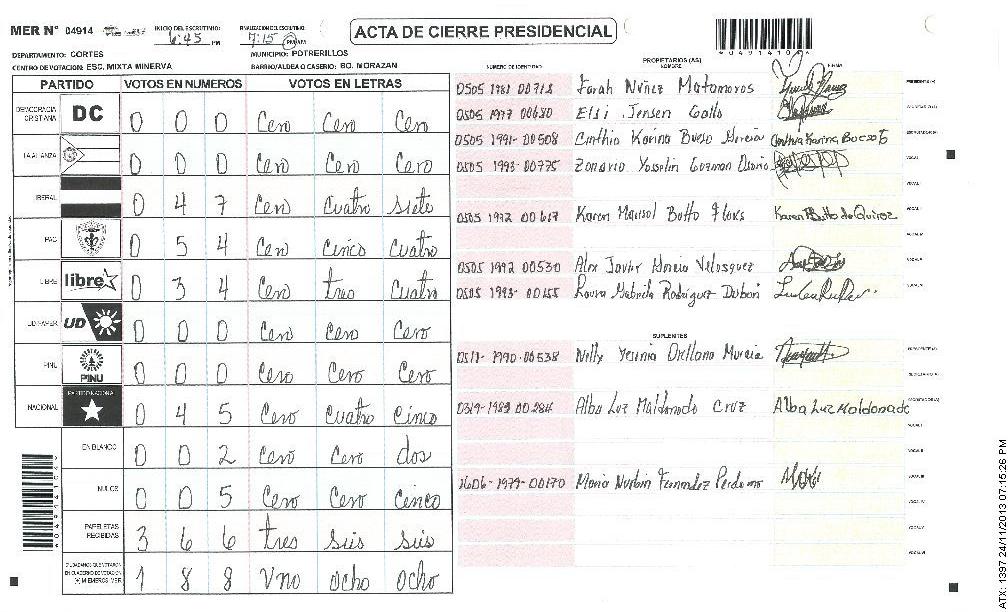 MER Nº 04914
INICIO DEL ESCRUTINIO: 6:45 PM
FINALIZACION DEL ESCRUTINIO: 7:15 PM/AM
ACTA DE CIERRE PRESIDENCIAL
04914104
DEPARTAMENTO: CORTES
MUNICIPIO: POTRERILLOS
CENTRO DE VOTACION: ESC. MIXTA MINERVA
BARRIO/ALDEA O CASERIO: BO. MORAZAN
PARTIDO VOTOS EN NUMEROS VOTOS EN LETRAS
DEMOCRACIA CRISTIANA DC 0 0 0 Cero Cero Cero
LA ALIANZA 0 0 0 Cero Cero Cero
LIBERAL 0 4 7 Cero Cuatro Siete
PAC 0 5 4 Cero Cinco Cuatro
LIBRE libre 0 3 4 Cero tres Cuatro
UD-FAPER UD 0 0 0 Cero Cero Cero
PINU PINU 0 0 0 Cero Cero Cero
NACIONAL PARTIDO NACIONAL 0 4 5 Cero Cuatro Cinco
EN BLANCO 0 0 2 Cero Cero dos
NULOS 0 0 5 Cero Cero Cinco
PAPELETAS RECIBIDAS 3 6 6 tres seis seis
CIUDADANOS QUE VOTARON EN CUADERNO DE VOTACION (+) MIEMBROS MER 1 8 8 Uno ocho ocho
NUMERO DE IDENTIDAD PROPIETARIOS (AS) NOMBRE FIRMA
0505 1981 00718 Farah Nuñez Matamoros
0505 1977 00680 Elsi Jensen Gallo
0505 1991-00508 Cinthia Karina Bueso Garcia Cinthia Karina Bueso G
0505 1993-00775 Yosselin Guzman Osorio
0505 1972 00617 Karen Marisol Botto Flores Karen Botto de Quiroz
0505 1992 00530 Alex Javier Garcia Velasquez
0505 1993-00155 Laura Gabriela Rodriguez Dubon
SUPLENTES
0511-1990-00538 Nelly Yesenia Orellana Murcia
0319-1982 00284 Alba Luz Maldonado Cruz Alba Luz Maldonado
1606-1979-00170 Maria Fernandez Perdomo
ATX: 1397 24/11/2013 07:15:26 PM